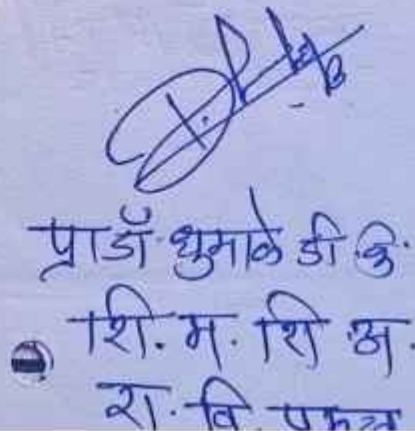 प्रा.डॉ. धुमाळे डी.बी.
शि. म. शि. अ.
रा. वि.